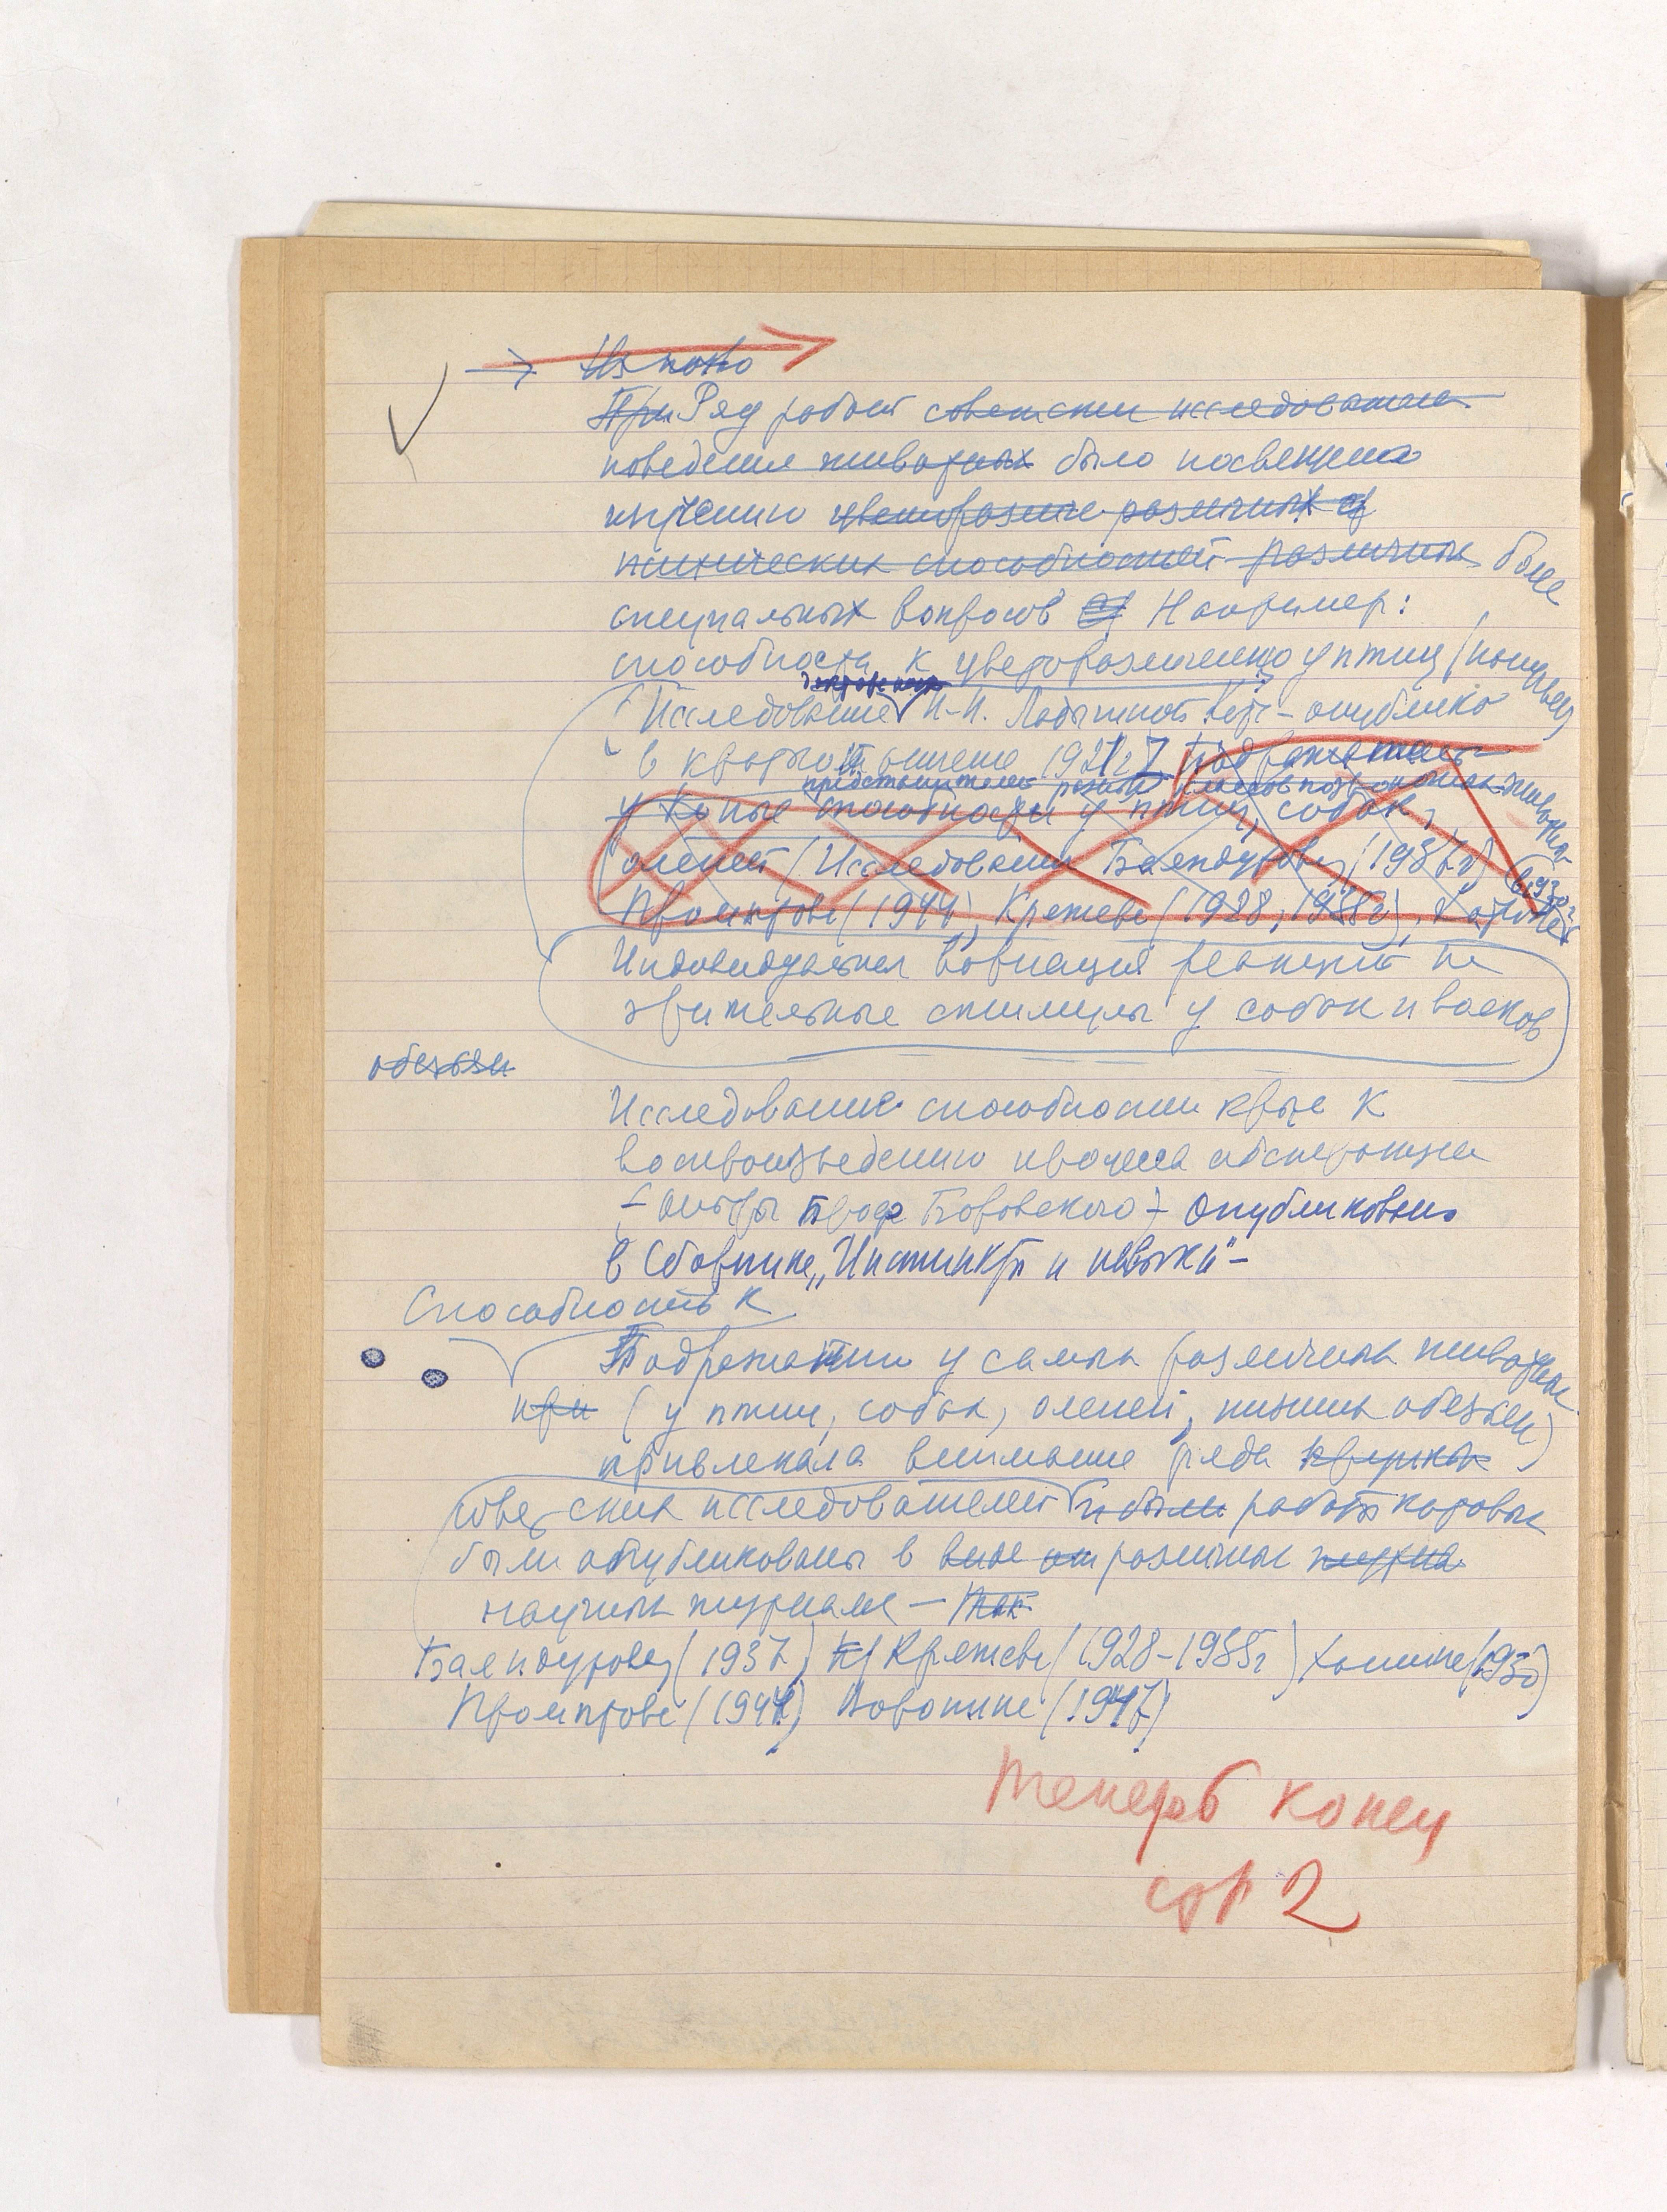 При Ряд работ советских исследователей
поведения животных было посвящено
изучению цветоразличе различных сп
психических способностей различных более
специальных вопросов Например:
способности к цветоразличению у птиц (попугаев)
(Исследование Н-Н. Ладыгиной Котс - опублико
в кратко 1921 г Подражатель
представителей разных позвоночных животных
способности у птиц, собак,
оленей (Исследования Баяндурова (1937 г)
Промптова (1944), Кряжева (1928, 1935 г), (1930 г
Индивидуальная вариация реакций на
зрительные стимулы у собак и волков
обезьян
Исследование способности крыс к
воспроизведению процесса абстракции
- Опыты Проф Боровского - Опубликовано
в Сборнике „Инстинкты и навыки" -
Способность к
Подражанию у самых различных животных
при (у птиц, собак, оленей, низших обезьян)
привлекала внимание ряда крупных
советских исследователей и были работы которых
были опубликованы в виде от различных
научных журналах - Так
Баяндурова (1937) Кряжева (1928-1935 г) Хотина (1930)
Промптова (1944) Воронина (1947)
Теперь конец
стр 2